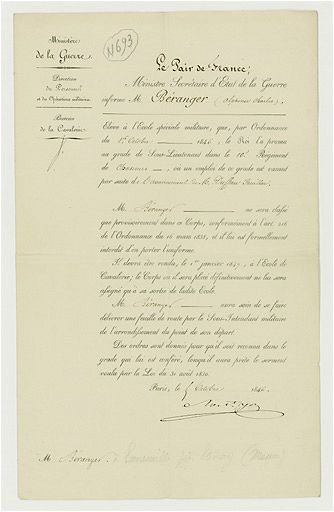 Ministère
de la Guerre.
Direction
du Personnel
et des Opérations militaires.
Bureau
de la Cavalerie.
N693
Le Pair de France,
Ministre Secrétaire d'État de la Guerre
informe M. Béranger (Alphonse Charles),
Élève à l'École spéciale militaire, que, par Ordonnance
du 1er Octobre 1846, le Roi l'a promu
au grade de Sous-Lieutenant dans le 10e Régiment
de Chasseurs, où un emploi de ce grade est vacant
par suite de l'avancement de M.
M. Béranger ne sera classé
que provisoirement dans ce Corps, conformément à l'art. 216
de l'Ordonnance du 16 mars 1838, et il lui est formellement
interdit d'en porter l'uniforme.
Il devra être rendu, le 1er janvier 1847, à l'École de
Cavalerie; le Corps où il sera placé définitivement ne lui sera
assigné qu'à sa sortie de ladite École.
M. Béranger aura soin de se faire
délivrer une feuille de route par le Sous-Intendant militaire
de l'arrondissement du point de son départ.
Des ordres sont donnés pour qu'il soit reconnu dans le
grade qui lui est conféré, lorsqu'il aura prêté le serment
voulu par la Loi du 31 août 1830.
Paris, le 5 Octobre 1846.
M. Béranger